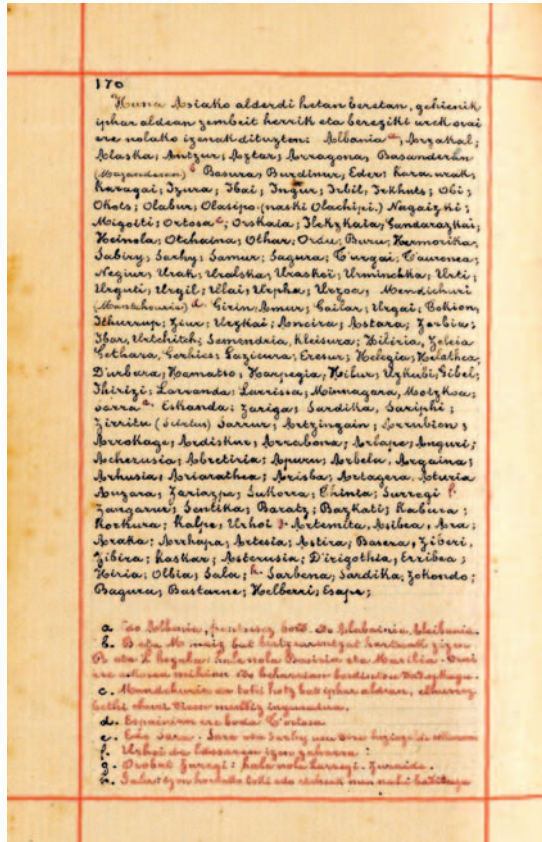 170
Huna Asiako alderdi hetan beretan, gehienik
iphar aldean zembeit herrik eta bereziki urek orai
ere nolako izenak dituzten: Albania a; Arzakal;
Alaska; Antzur; Aztar; Arragona; Basanderen
(Mazanderan) b Basura; Burdinur; Eder; Kara urak;
Karagai; Izura; Ibai; Ingur; Irbil; Irkhuts; Obi;
Okots; Olabur; Olasipo (naski Olachipi.) Nagaizki;
Migoiti; Ortosa c; Orskaia; Ilekzkaia; Gandarazkai;
Heinola; Otchaina; Othar; Ordu; Buru; Harmorika;
Sabiry; Sarhy; Samur; Sagura; Turgai; Tauronea;
Negiur; Urak; Uralska; Uraskoi; Urminchka; Urti;
Urguti; Urgil; Ulai; Urpha; Urzoa; Mendichuri
(Mantchouria) d. Girin; Amur; Gailar; Urgai; Bokion;
Ithurrup; Ziur; Urzkai; Ancira; Astara; Zerbia;
Ibar; Urtchitch; Semendria; Kleisura; Diliria; Zeleia
Gethara; Gerhies; Lazicura; Eresur; Helegia; Helathea;
D'urbara; Hamatso; Harpegia; Hilur; Uzkubi; Gibel;
Thirizi; Larvanda; Larrissa; Minnagara; Motzkoa;
Sarra e. Eskanda; Zariga; Sardika; Sariphi;
Zirritu Sarrur; Artzingain; Arrubion;
Arrokage; Ardiskur; Arrabona; Arbape; Anguri;
Acherusia; Abretiria; Apuru; Arbela; Argaina;
Arhusia; Ariarathea; Arisba; Artagera; Aturia
Auzara; Zariazpa; Sukorra; Chinta; Surragi f.
Zangarur; Sentika; Baratz; Bazkati; Kabura;
Korkura; Kalpe; Urhoi g. Artemita; Asibea; Ara;
Araka; Arrhapa; Artesia; Astira; Basera; Ziberi;
Zibira; Kaskar; Asterusia; D'irigothia; Erribea;
Hiria; Olbia; Sala; h. Sarbena; Sardika; Zokondo;
Bagura; Bastarne; Helberri; Esape;
a. Edo Albania,
b. B eta M maiz bat bertzearentzat hartuak ziren
R eta L hegula: hala nola Basiria eta Marilia.
c. Mandchuria da toki hotz bat iphar aldean, elhurrez
bethi
d. Espainian ere bada Tortosa
e. Edo Sara. Sara eta Sarhy
f. Urhoi da Edessaren izen zaharra:
g. Orobat Zuregi: hala nola Larregi. Zuraide.
h. Sala: izen hortako toki edo etcheak nun nahi baditugu